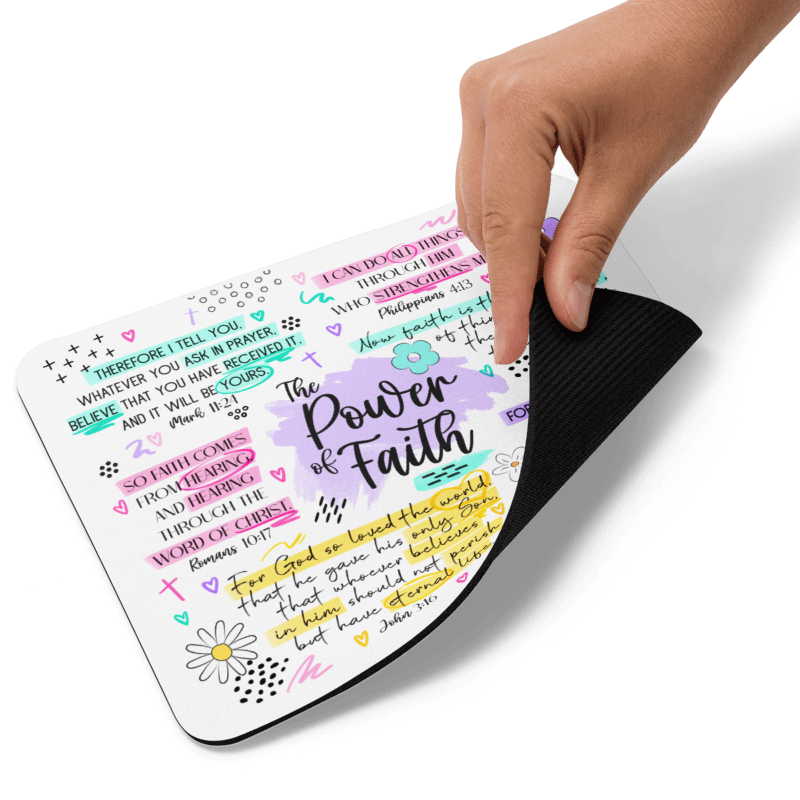 I CAN DO ALL THINGS
THROUGH HIM
WHO STRENGTHENS
Philippians 4:13
THEREFORE I TELL YOU,
WHATEVER YOU ASK IN PRAYER,
BELIEVE THAT YOU HAVE RECEIVED IT,
AND IT WILL BE YOURS.
Mark 11:24
Now faith is
of
The
Power
of Faith
FOR
SO FAITH COMES
FROM HEARING
AND HEARING
THROUGH THE
WORD OF CHRIST.
Romans 10:17
For God so loved the world,
that he gave his only Son,
that whoever believes
in him should not perish
but have eternal life
John 3:16